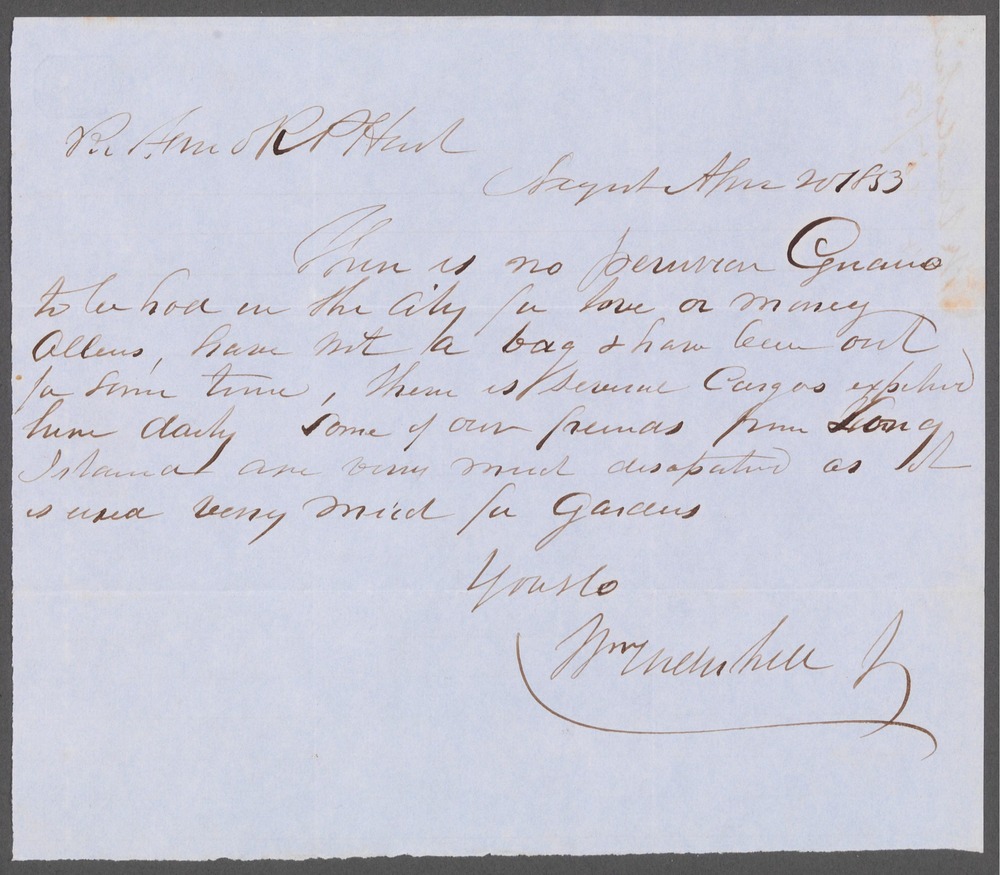 R P Hart
New york Apr 20 1853
There is no peruvian Guano
to be had in the City for love or money
Allens, have not a bag & have been out
for some time, there is several Cargos expected
here daily Some of our freinds from Long
Island are verry much disapated as it
is used verry much for Gardens
Yours &c
Wm J